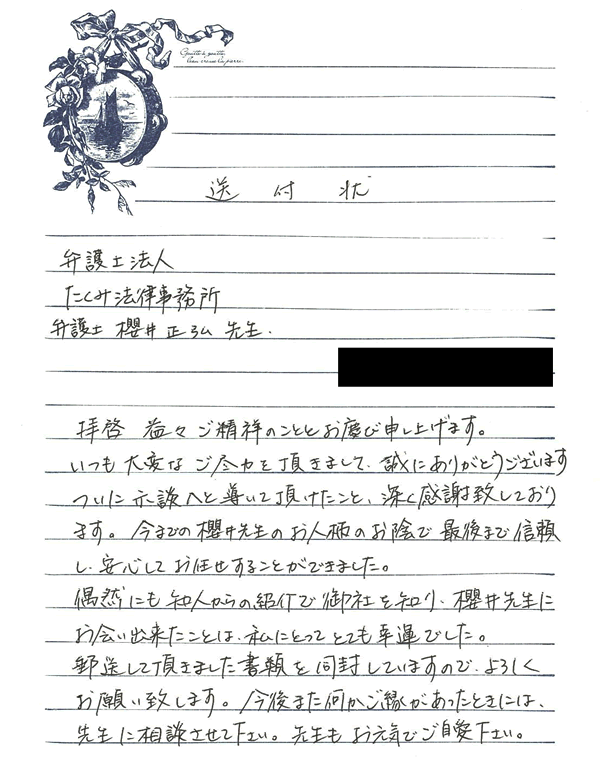 Goutte à goutte
l'eau creuse la pierre.
送付状
弁護士法人
たくみ法律事務所
弁護士 櫻井正弘 先生.
拝啓 益々ご精祥のこととお慶び申し上げます。
いつも大変なご尽力を頂きまして、誠にありがとうございます
ついに示談へと導いて頂けたこと、深く感謝致しており
ます。今までの櫻井先生のお人柄のお陰で最後まで信頼
し、安心してお任せすることができました。
偶然にも知人からの紹介で御社を知り、櫻井先生に
お会い出来たことは、私にとってとても幸運でした。
郵送して頂きました書類を同封していますので、よろしく
お願い致します。今後また何かご縁があったときには、
先生に相談させて下さい。先生もお元気でご自愛下さい。